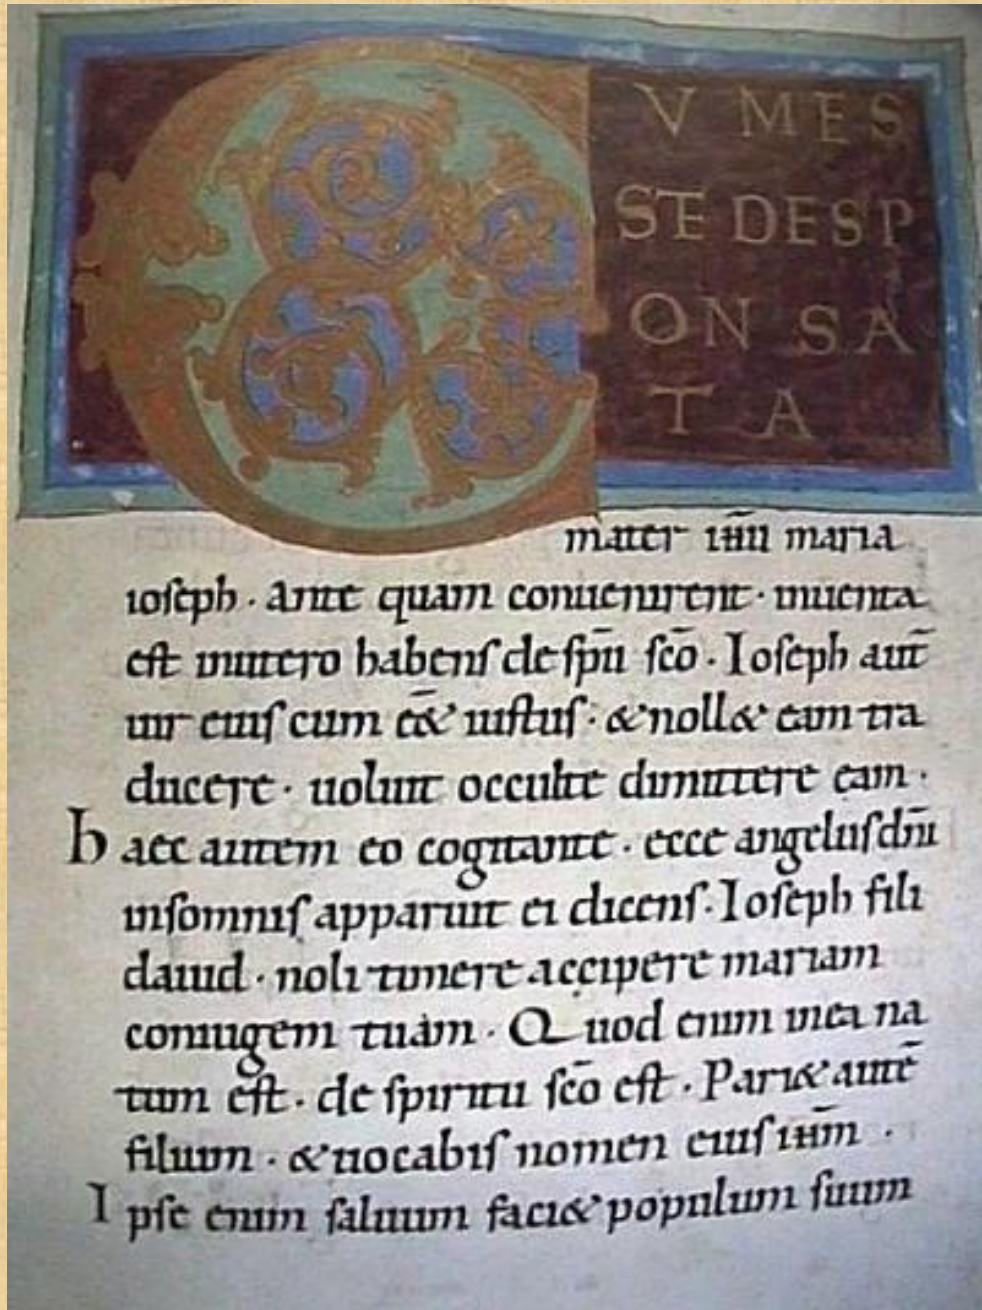 C V M E S
SE DESP
ON SA
T A
mater ihu maria
ioseph · Ante quam conuenirent · inuenta
est inutero habens de spu sco · Ioseph aut
uir eius cum eet iustus · & noll& eam tra
ducere · uoluit occulte dimittere eam ·
haec autem eo cogitante · ecce angelus dni
insomnis apparuit ei dicens · Ioseph fili
dauid · noli timere accipere mariam
coniugem tuam · Quod enim inea na
tum est · de spiritu sco est · Pari& aute
filium · & uocabis nomen eius ihm ·
Ipse enim saluum faci& populum suum